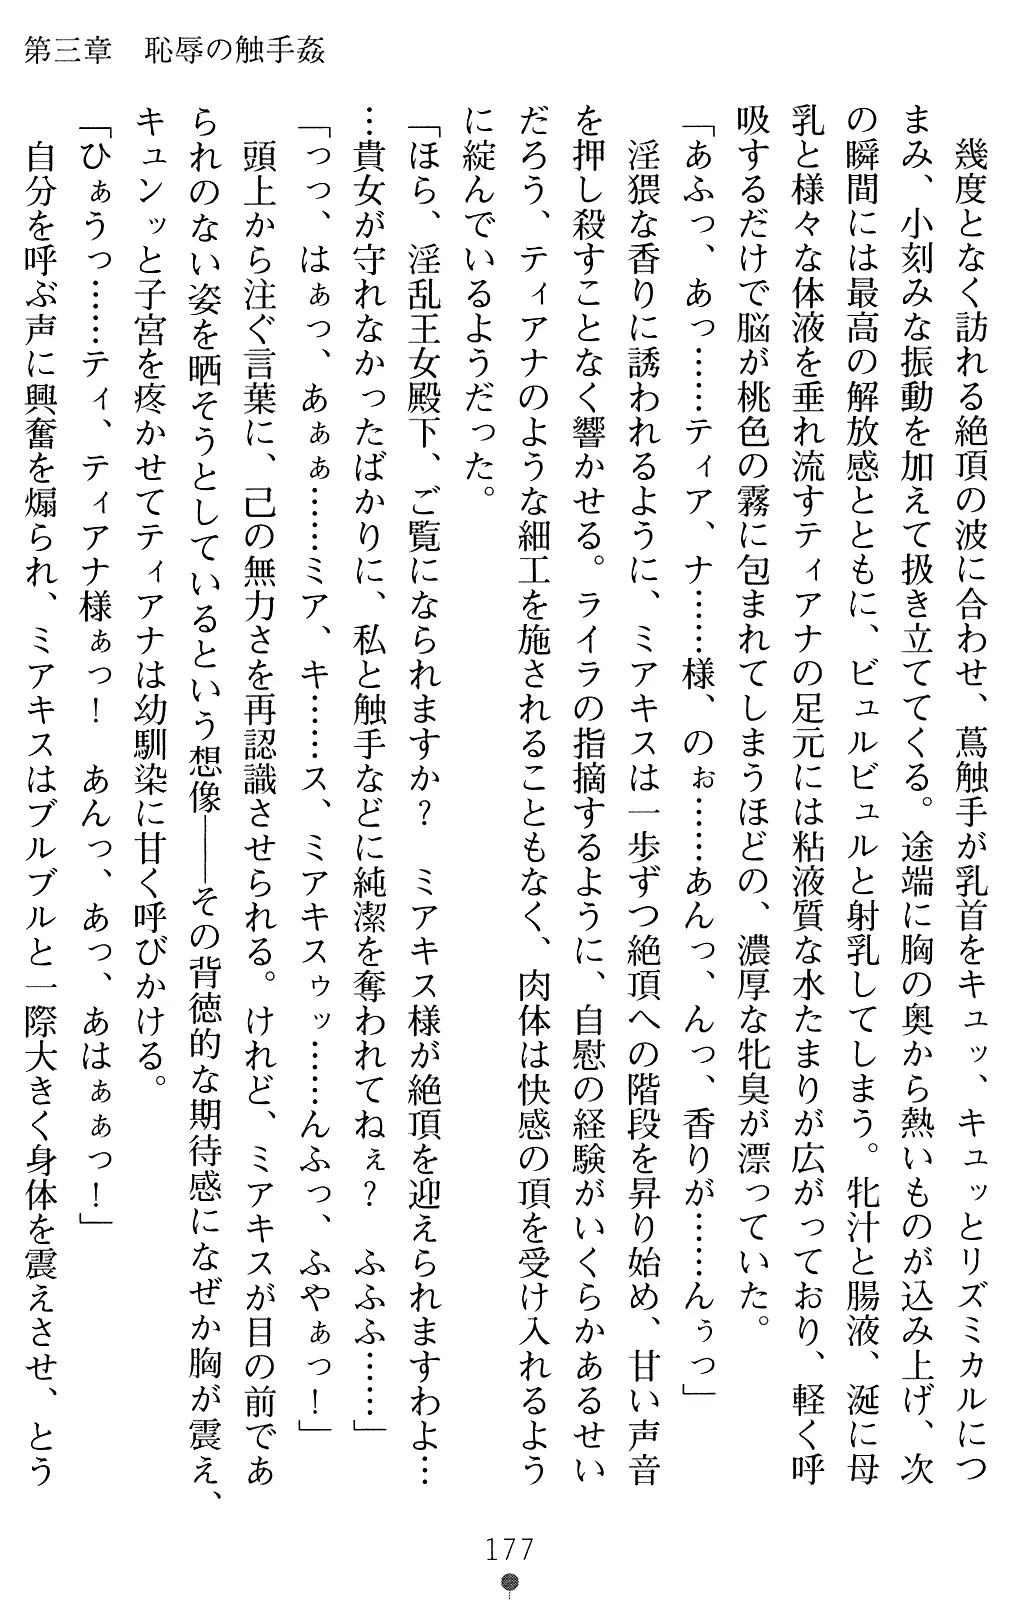 第三章　恥辱の触手姦
　幾度となく訪れる絶頂の波に合わせ、蔦触手が乳首をキュッ、キュッとリズミカルにつ
まみ、小刻みな振動を加えて扱き立ててくる。途端に胸の奥から熱いものが込み上げ、次
の瞬間には最高の解放感とともに、ビュルビュルと射乳してしまう。牝汁と腸液、涎に母
乳と様々な体液を垂れ流すティアナの足元には粘液質な水たまりが広がっており、軽く呼
吸するだけで脳が桃色の霧に包まれてしまうほどの、濃厚な牝臭が漂っていた。
「あふっ、あっ……ティア、ナ……様、のぉ……あんっ、んっ、香りが……んぅっ」
　淫猥な香りに誘われるように、ミアキスは一歩ずつ絶頂への階段を昇り始め、甘い声音
を押し殺すことなく響かせる。ライラの指摘するように、自慰の経験がいくらかあるせい
だろう、ティアナのような細工を施されることもなく、肉体は快感の頂を受け入れるよう
に綻んでいるようだった。
「ほら、淫乱王女殿下、ご覧になられますか？　ミアキス様が絶頂を迎えられますわよ…
…貴女が守れなかったばかりに、私と触手などに純潔を奪われてねぇ？　ふふふ……」
「っっ、はぁっ、あぁぁ……ミア、キ……ス、ミアキスゥッ……んふっ、ふやぁっ！」
　頭上から注ぐ言葉に、己の無力さを再認識させられる。けれど、ミアキスが目の前であ
られのない姿を晒そうとしているという想像――その背徳的な期待感になぜか胸が震え、
キュンッと子宮を疼かせてティアナは幼馴染に甘く呼びかける。
「ひぁうっ……ティ、ティアナ様ぁっ！　あんっ、あっ、あはぁぁっ！」
　自分を呼ぶ声に興奮を煽られ、ミアキスはブルブルと一際大きく身体を震えさせ、とう
177